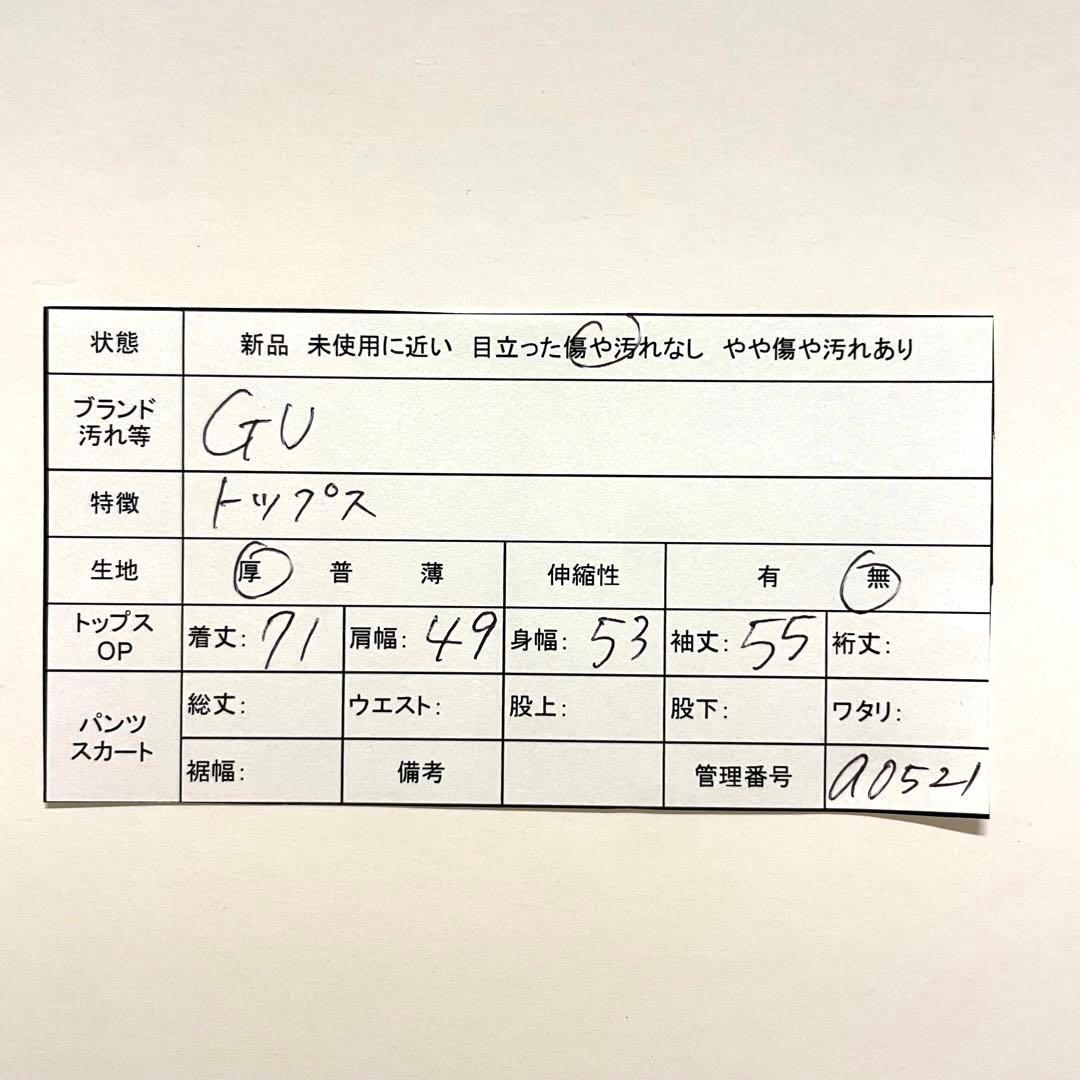 状態 新品 未使用に近い 目立った傷や汚れなし やや傷や汚れあり
ブランド
汚れ等
GU
特徴 トップス
生地 厚 普 薄 伸縮性 有 無
トップス
OP
着丈: 71 肩幅: 49 身幅: 53 袖丈: 55 裄丈:
パンツ
スカート
総丈: ウエスト: 股上: 股下: ワタリ:
裾幅: 備考 管理番号 a0521